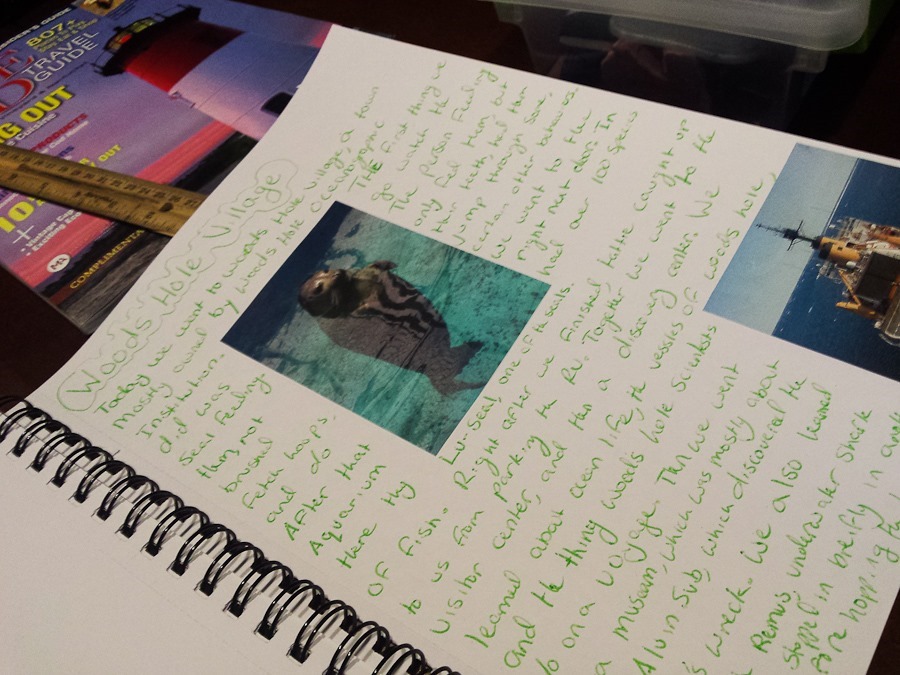 807+
TRAVEL
GUIDE
NG OUT
OUT
10
COMPLIMENTA
M1
Woods Hole Village
Today we went to woods Hole village a town
mostly owned by Woods Hole Oceanographic
Institution. THE First thing we
did was go watch the
Seal Feeling The Person Feeling
them, not only feel them, but
brushed their teeth, had them
fetch hoops, jump through some,
and do own other behaviors.
After that we went to the
Aquarium right next door. In
Here they had over 100 species
Lu-Seal, one of the seals.
OF Fish. Right after we finished, Hattie caught up
to us from parking the RV. Together we went to the
Visitor center, and then a discovery center. We
learned about ocean life, the vessles of woods hole,
and the thing woods hole scientists
do on a voyage. Then we went
a museum, which was mostly about
Alvin Sub, which discovered the
's wreck. We also learned
Remus, underwater shark
stopped in briefly in
fore hopping